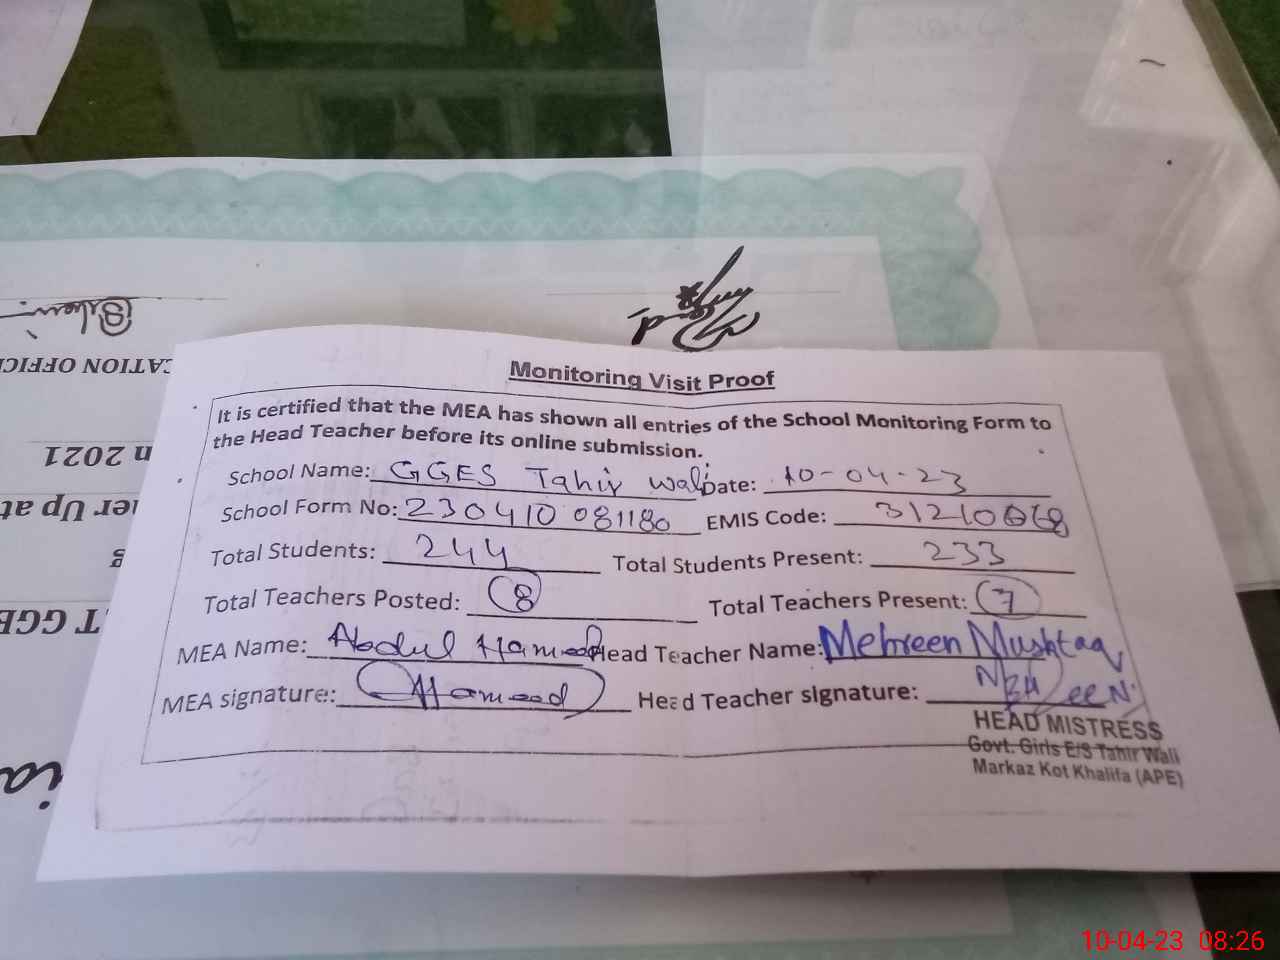 Monitoring Visit Proof
It is certified that the MEA has shown all entries of the School Monitoring Form to
the Head Teacher before its online submission.
School Name: GGES Tahir wali Date: 10-04-23
School Form No: 230410081180 EMIS Code:
Total Students: 244 Total Students Present: 233
Total Teachers Posted: 8 Total Teachers Present: 7
MEA Name: Abdul Hameed Head Teacher Name: Mehreen Mushtaq
MEA signature: Hameed Head Teacher signature:
HEAD MISTRESS
Govt. Girls E/S Tahir Wali
Markaz Kot Khalifa (APE)
CATION OFFIC
n 2021
er Up at
T GGE
10-04-23 08:26